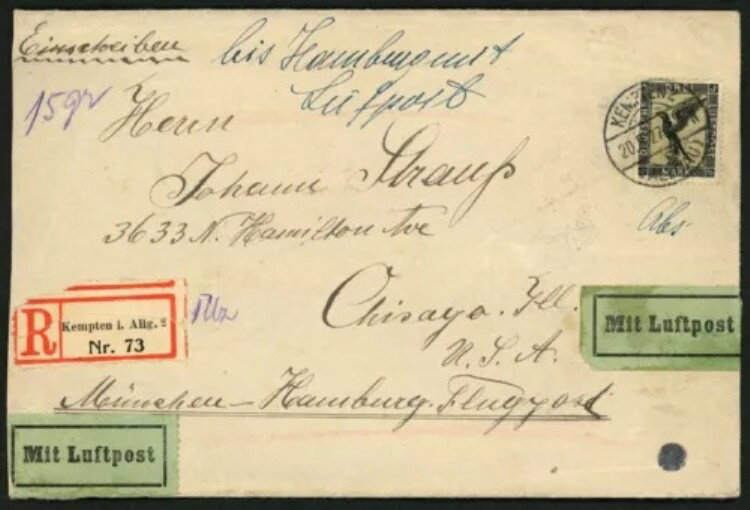 Einschreiben
bis Hamburg mit
Luftpost
15gr
Herrn
Johann Strauß
3633 N. Hamilton Ave
Chicago. Ill.
U. S. A.
München–Hamburg. Flugpost
Abs.
R Kempten i. Allg. 2
Nr. 73
Mit Luftpost
Mit Luftpost
KEMPTEN
20
MARK